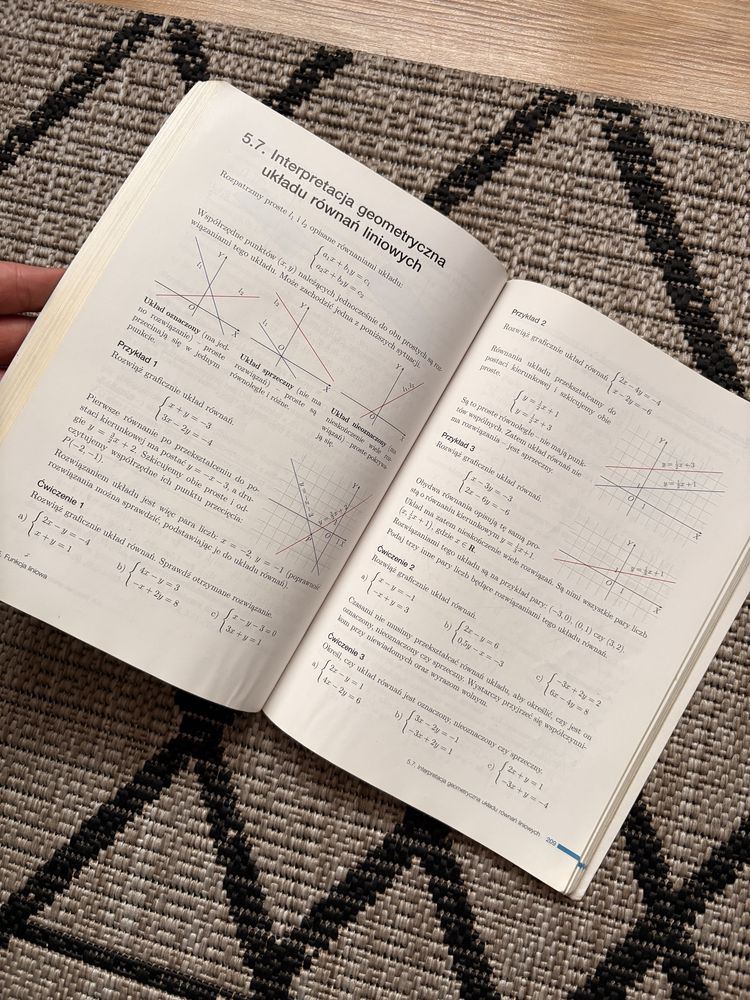 5.7. Interpretacja geometryczna
układu równań liniowych
Rozpatrzmy proste l₁ i l₂ opisane równaniami układu:
{a₁x + b₁y = c₁
a₂x + b₂y = c₂
Współrzędne punktów (x, y) należących jednocześnie do obu prostych są roz-
wiązaniami tego układu. Może zachodzić jedna z poniższych sytuacji.
l₁ Y l₂ O X
l₁ l₂ Y O X
Y l₁, l₂ O X
Układ oznaczony (ma jed-
no rozwiązanie) – proste
przecinają się w jednym
punkcie.
Układ sprzeczny (nie ma
rozwiązań) – proste są
równoległe i różne.
Układ nieoznaczony (ma
nieskończenie wiele roz-
wiązań) – proste pokrywa-
ją się.
Przykład 1
Rozwiąż graficznie układ równań.
{x + y = −3
3x − 2y = −4
Pierwsze równanie po przekształceniu do po-
staci kierunkowej ma postać y = −x − 3, a dru-
gie y = 3/2x + 2. Szkicujemy obie proste i od-
czytujemy współrzędne ich punktu przecięcia:
P(−2, −1).
Rozwiązaniem układu jest więc para liczb: x = −2, y = −1 (poprawność
rozwiązania można sprawdzić, podstawiając je do układu równań).
Ćwiczenie 1
Rozwiąż graficznie układ równań. Sprawdź otrzymane rozwiązanie.
a) {2x − y = −4
x + y = 1
b) {4x − y = 3
−x + 2y = 8
c) {x − y − 3 = 0
3x + y = 1
5. Funkcja liniowa
Przykład 2
Rozwiąż graficznie układ równań {2x − 4y = −4
x − 2y = −6
Równania układu przekształcamy do
postaci kierunkowej i szkicujemy obie
proste.
{y = 1/2x + 1
y = 1/2x + 3
Są to proste równoległe – nie mają punk-
tów wspólnych. Zatem układ równań nie
ma rozwiązania – jest sprzeczny.
Y y = 1/2x + 3
y = 1/2x + 1
1 O 1 X
Przykład 3
Rozwiąż graficznie układ równań.
{x − 3y = −3
2x − 6y = −6
Obydwa równania opisują tę samą pro-
stą o równaniu kierunkowym y = 1/3x + 1
Układ ma zatem nieskończenie wiele rozwiązań. Są nimi wszystkie pary liczb
(x, 1/3x + 1), gdzie x ∈ R.
Rozwiązaniami tego układu są na przykład pary: (−3, 0), (0, 1) czy (3, 2).
Podaj trzy inne pary liczb będące rozwiązaniami tego układu równań.
Y y = 1/3x + 1
1 O 1 X
Ćwiczenie 2
Rozwiąż graficznie układ równań.
a) {x − y = −1
−x + y = 3
b) {2x − y = 6
0,5y − x = −3
c) {−3x + 2y = 2
6x − 4y = 8
Czasami nie musimy przekształcać równań układu, aby określić, czy jest on
oznaczony, nieoznaczony czy sprzeczny. Wystarczy przyjrzeć się współczynni-
kom przy niewiadomych oraz wyrazom wolnym.
Ćwiczenie 3
Określ, czy układ równań jest oznaczony, nieoznaczony czy sprzeczny.
a) {2x − y = 1
4x − 2y = 6
b) {3x − 2y = −1
−3x + 2y = 1
c) {2x + y = 1
−3x + y = −4
5.7. Interpretacja geometryczna układu równań liniowych 209